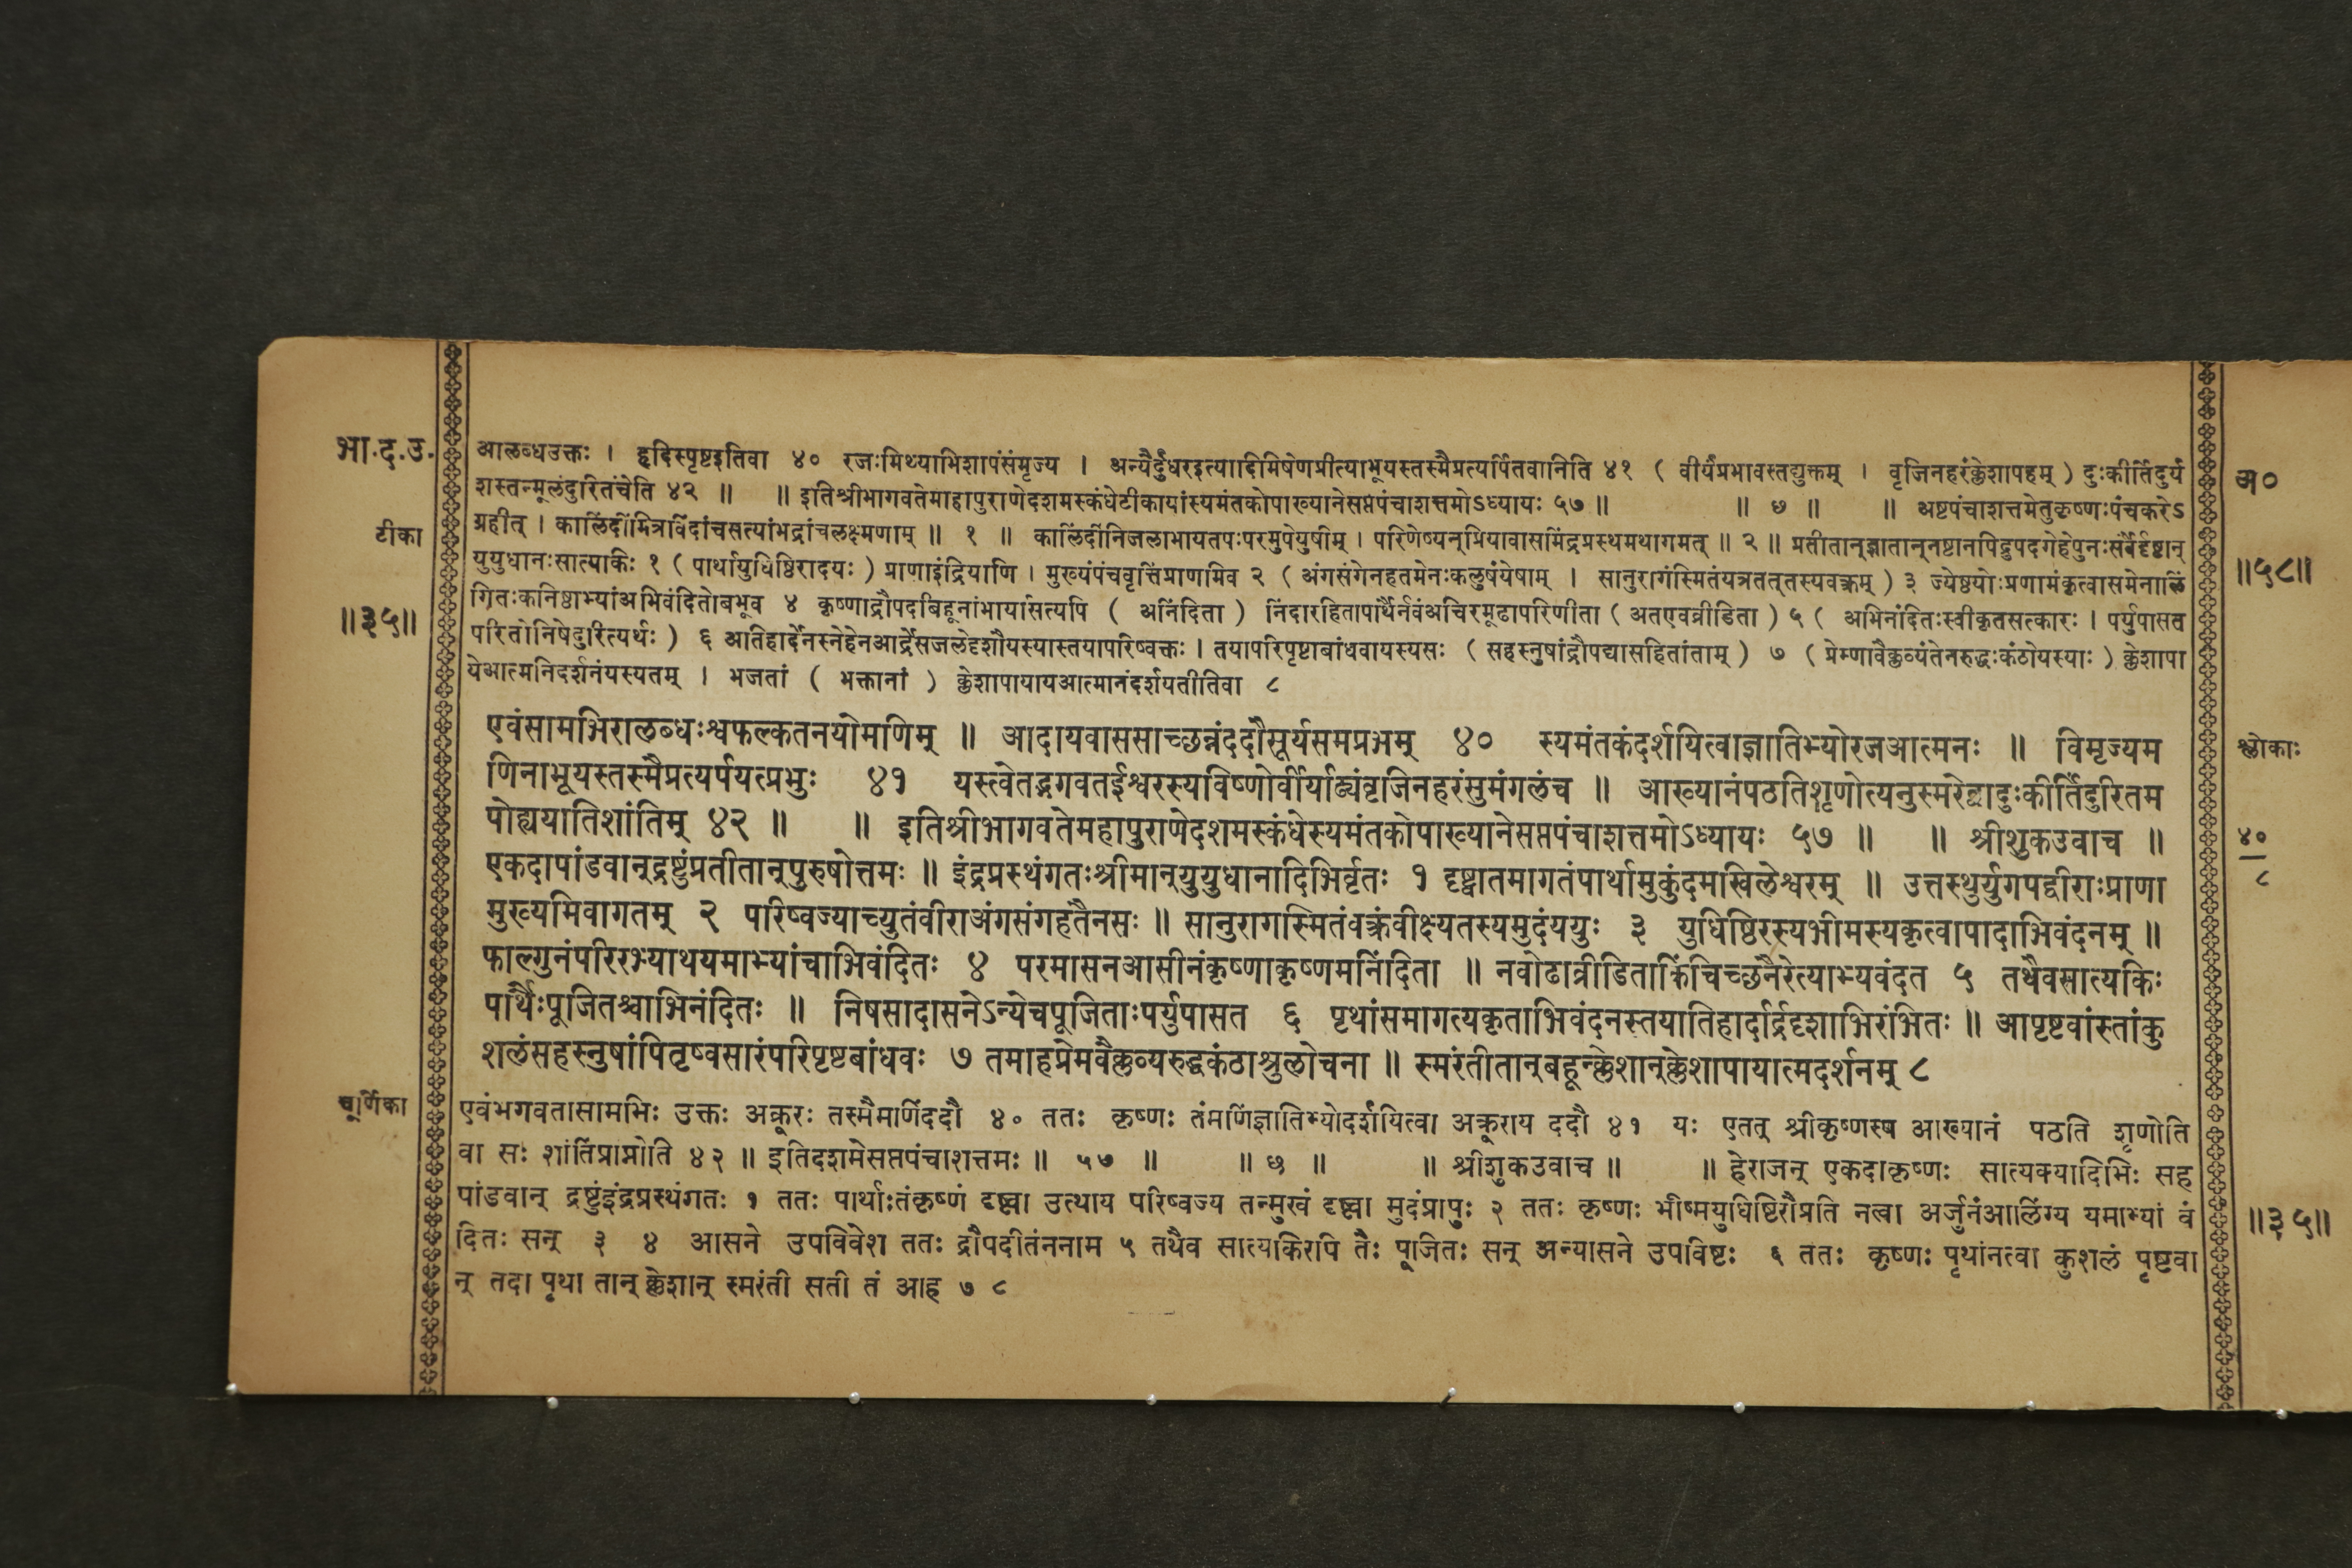 भा.द.उ.
आलब्धउक्तः । हृदिस्पृष्टइतिवा ४० रजःमिथ्याभिशापंसंमृज्य । अन्यैर्दुर्धरइत्यादिमिषेणप्रीत्याभूयस्तस्मैप्रत्यर्पितवानिति ४१ ( वीर्यंप्रभावस्तद्युक्तम् । वृजिनहरंक्लेशापहम् ) दुःकीर्तिंदुर्य
अ०
शस्तन्मूलंदुरितंचेति ४२ ॥ ॥ इतिश्रीभागवतेमाहापुराणेदशमस्कंधेटीकायांस्यमंतकोपाख्यानेसप्तपंचाशत्तमोऽध्यायः ५७ ॥ ॥ ७ ॥ ॥ अष्टपंचाशत्तमेतुकृष्णःपंचकरेऽ
टीका
ग्रहीत् । कालिंदींमित्रविंदांचसत्यांभद्रांचलक्ष्मणाम् ॥ १ ॥ कालिंदींनिजलाभायतपःपरमुपेयुषीम् । परिणेष्यन्प्रियावासमिंद्रप्रस्थमथागमत् ॥ २ ॥ प्रतीतान्ज्ञातान्नष्टानपिद्रुपदगेहेपुनःसर्वैर्दृष्टान्
॥५८॥
युयुधानःसात्यकिः १ ( पार्थायुधिष्ठिरादयः ) प्राणाइंद्रियाणि । मुख्यंपंचवृत्तिंप्राणमिव २ ( अंगसंगेनहतमेनःकलुषंयेषाम् । सानुरागंस्मितंयत्रतत्तस्यवक्त्रम् ) ३ ज्येष्ठयोःप्रणामंकृत्वासमेनालिं
॥३५॥
गितःकनिष्ठाभ्यांअभिवंदितोबभूव ४ कृष्णाद्रौपदीबहूनांभार्यासत्यपि ( अनिंदिता ) निंदारहितापार्थैर्नवंअचिरमूढापरिणीता ( अतएवव्रीडिता ) ५ ( अभिनंदितःस्वीकृतसत्कारः । पर्युपासत
परितोनिषेदुरित्यर्थः ) ६ अतिहार्देनस्नेहेनआर्द्रेसजलेदृशौयस्यास्तयापरिष्वक्तः । तयापरिपृष्टाबांधवायस्यसः ( सहस्नुषांद्रौपद्यासहितांताम् ) ७ ( प्रेम्णावैक्लव्यंतेनरुद्धःकंठोयस्याः ) क्लेशापा
येआत्मनिदर्शनंयस्यतम् । भजतां ( भक्तानां ) क्लेशापायायआत्मानंदर्शयतीतिवा ८
एवंसामभिरालब्धःश्वफल्कतनयोमणिम् ॥ आदायवाससाच्छन्नंददौसूर्यसमप्रभम् ४० स्यमंतकंदर्शयित्वाज्ञातिभ्योरजआत्मनः ॥ विमृज्यम
श्लोकाः
णिनाभूयस्तस्मैप्रत्यर्पयत्प्रभुः ४१ यस्त्वेतद्भगवतईश्वरस्यविष्णोर्वीर्याढ्यंवृजिनहरंसुमंगलंच ॥ आख्यानंपठतिशृणोत्यनुस्मरेद्वादुःकीर्तिंदुरितम
पोह्ययातिशांतिम् ४२ ॥ ॥ इतिश्रीभागवतेमहापुराणेदशमस्कंधेस्यमंतकोपाख्यानेसप्तपंचाशत्तमोऽध्यायः ५७ ॥ ॥ श्रीशुकउवाच ॥
४०
एकदापांडवान्द्रष्टुंप्रतीतान्पुरुषोत्तमः ॥ इंद्रप्रस्थंगतःश्रीमान्युयुधानादिभिर्वृतः १ दृष्ट्वातमागतंपार्थामुकुंदमखिलेश्वरम् ॥ उत्तस्थुर्युगपद्वीराःप्राणा
८
मुख्यमिवागतम् २ परिष्वज्याच्युतंवीराअंगसंगहतैनसः ॥ सानुरागस्मितंवक्त्रंवीक्ष्यतस्यमुदंययुः ३ युधिष्ठिरस्यभीमस्यकृत्वापादाभिवंदनम् ॥
फाल्गुनंपरिरभ्याथयमाभ्यांचाभिवंदितः ४ परमासनआसीनंकृष्णाकृष्णमनिंदिता ॥ नवोढाव्रीडिताकिंचिच्छनैरेत्याभ्यवंदत ५ तथैवसात्यकिः
पार्थैःपूजितश्चाभिनंदितः ॥ निषसादासनेऽन्येचपूजिताःपर्युपासत ६ पृथांसमागत्यकृताभिवंदनस्तयातिहार्दार्द्रदृशाभिरंभितः ॥ आपृष्टवांस्तांकु
शलंसहस्नुषांपितृष्वसारंपरिपृष्टबांधवः ७ तमाहप्रेमवैक्लव्यरुद्धकंठाश्रुलोचना ॥ स्मरंतीतान्बहून्क्लेशान्क्लेशापायात्मदर्शनम् ८
चूर्णिका
एवंभगवतासामभिः उक्तः अक्रूरः तस्मैमणिंददौ ४० ततः कृष्णः तंमणिंज्ञातिभ्योदर्शयित्वा अक्रूराय ददौ ४१ यः एतत् श्रीकृष्णस्य आख्यानं पठति शृणोति
वा सः शांतिंप्राप्नोति ४२ ॥ इतिदशमेसप्तपंचाशत्तमः ॥ ५७ ॥ ॥ छ ॥ ॥ श्रीशुकउवाच ॥ ॥ हेराजन् एकदाकृष्णः सात्यक्यादिभिः सह
पांडवान् द्रष्टुंइंद्रप्रस्थंगतः १ ततः पार्थाःतंकृष्णं दृष्ट्वा उत्थाय परिष्वज्य तन्मुखं दृष्ट्वा मुदंप्रापुः २ ततः कृष्णः भीष्मयुधिष्ठिरौप्रति नत्वा अर्जुनंआलिंग्य यमाभ्यां वं
॥३५॥
दितः सन् ३ ४ आसने उपविवेश ततः द्रौपदीतंननाम ५ तथैव सात्यकिरपि तैः पूजितः सन् अन्यासने उपविष्टः ६ ततः कृष्णः पृथांनत्वा कुशलं पृष्टवा
न् तदा पृथा तान् क्लेशान् स्मरंती सती तं आह ७ ८